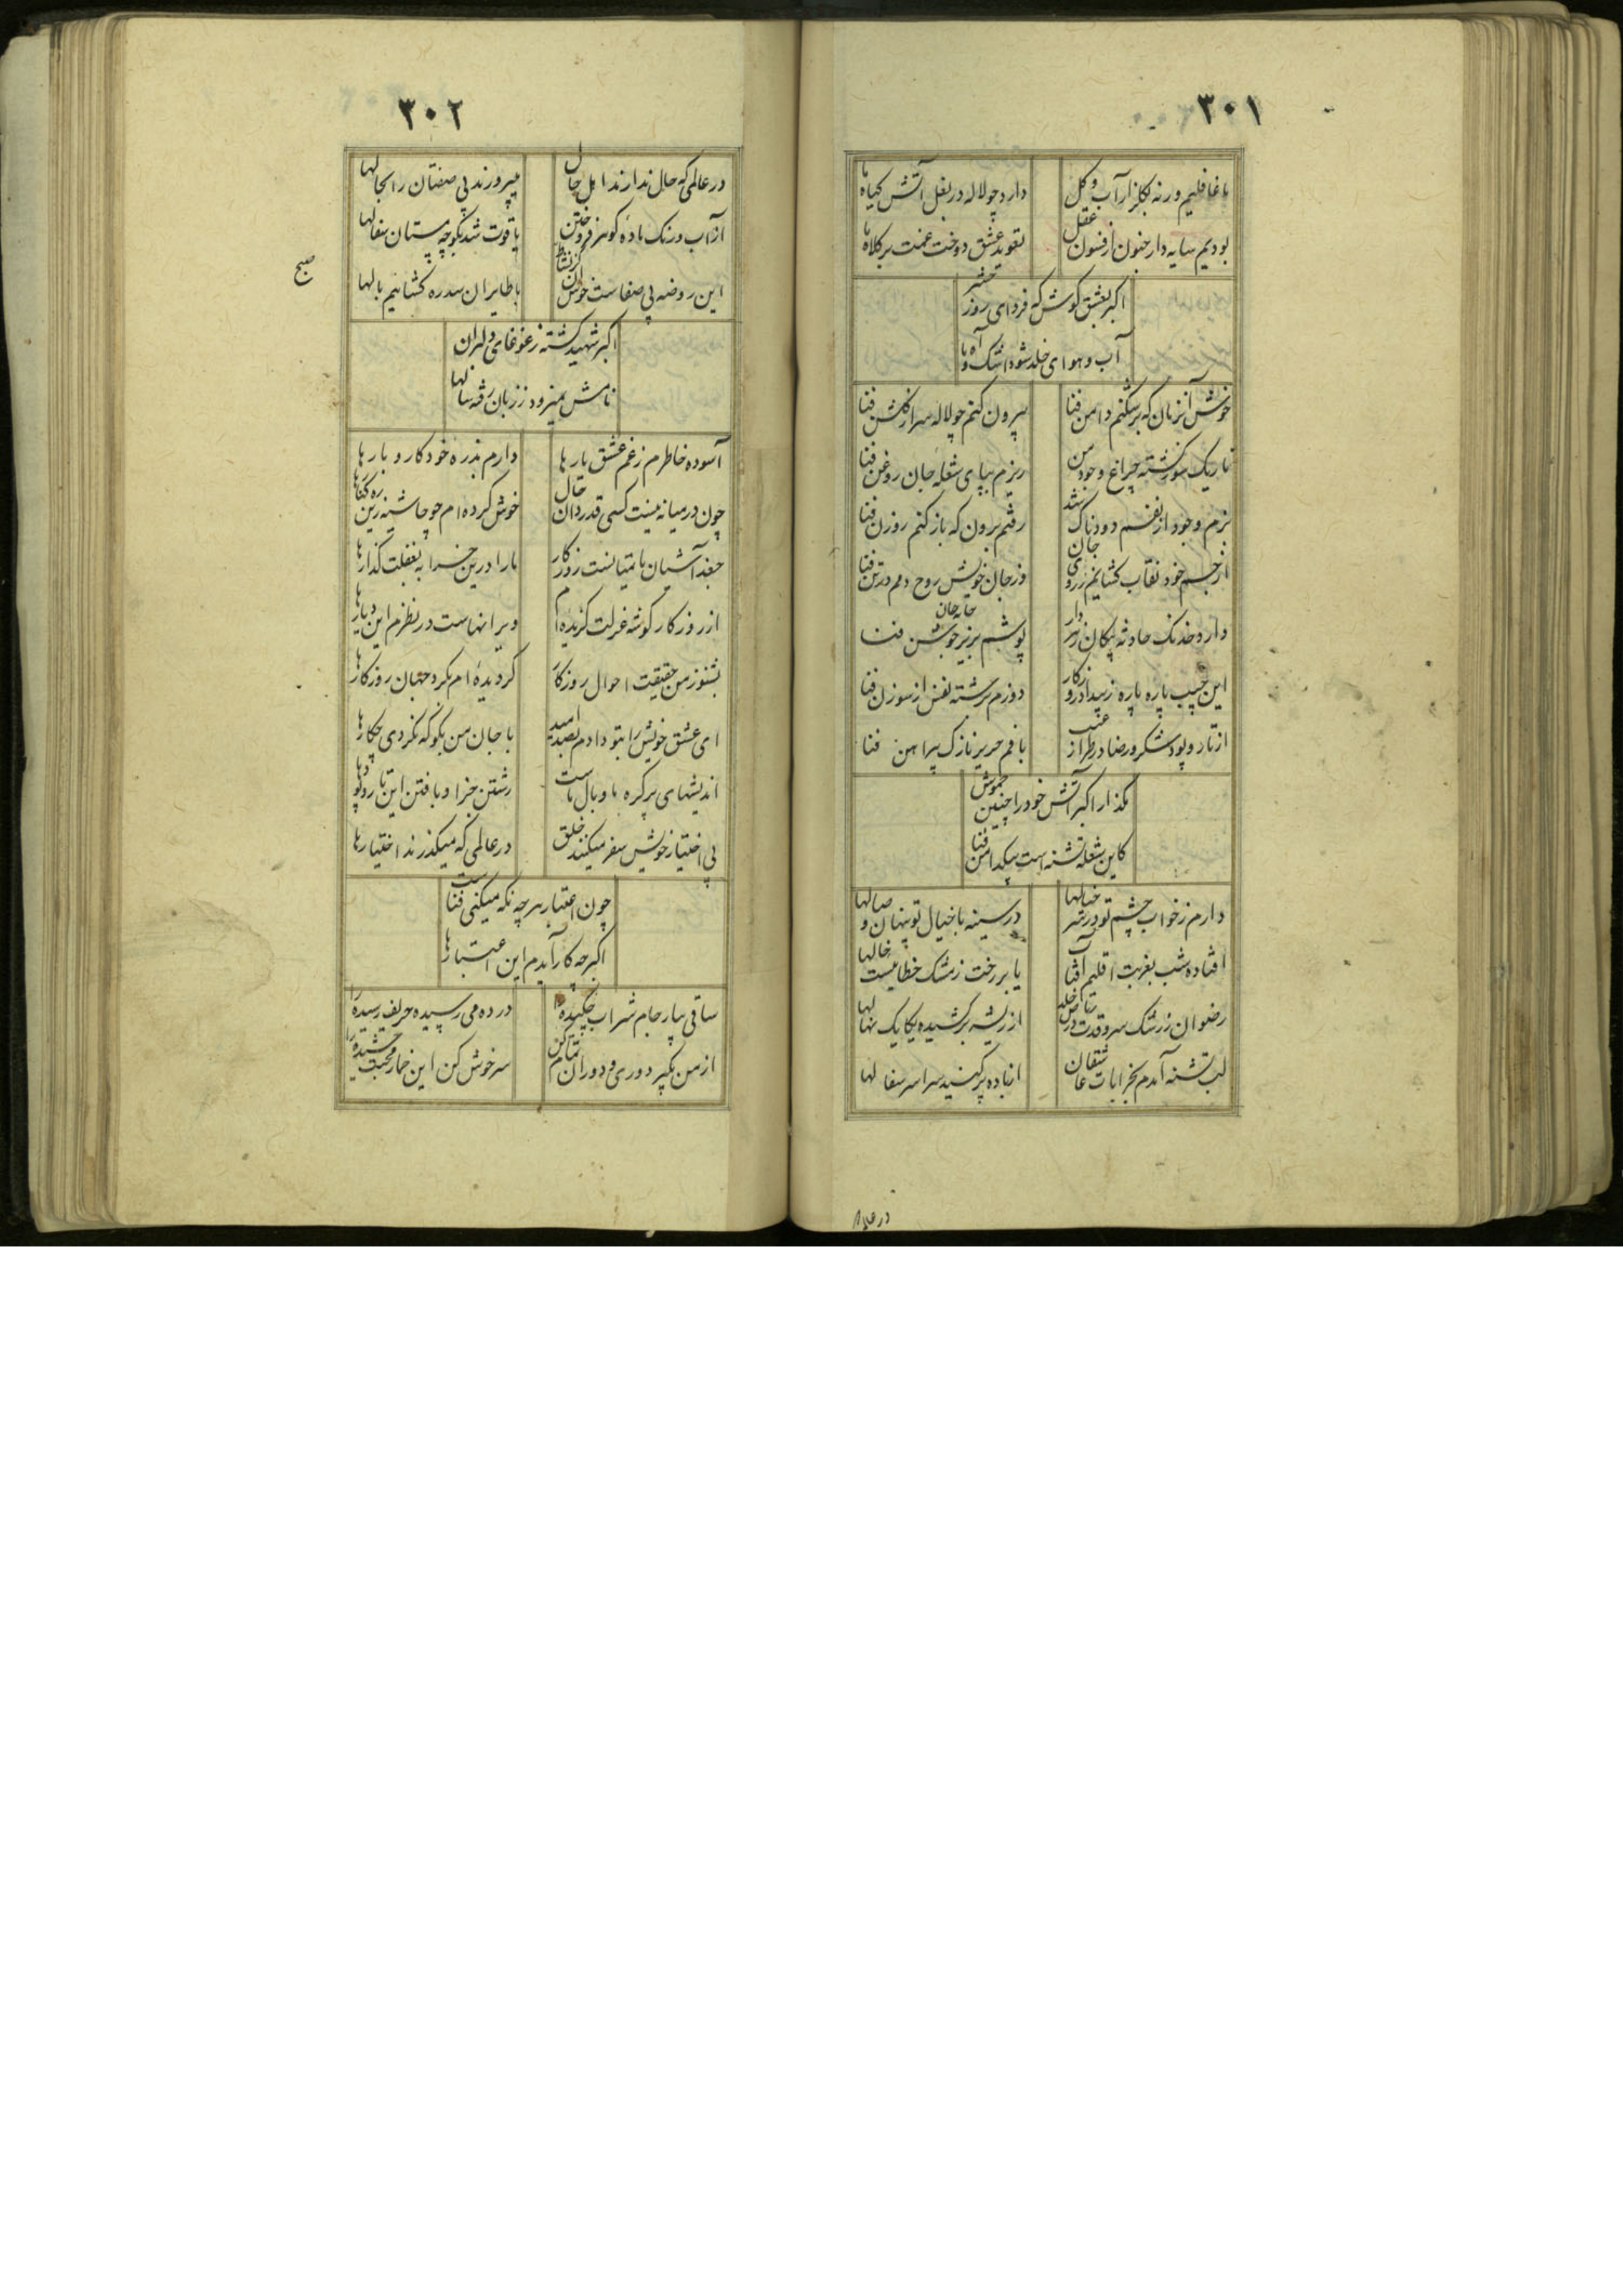 ٣٠١
ما غافلیم ورنه بگلزار آب و گل
دارد چو لاله در بغل آتش گیاه ها
بودیم سایه دار جنون از فسون عقل
تعوید عشق دوخت غمت بر کلاه ها
اکبر بعشق کوش که فردای روز حشر
آب و هوای خلد شود اشک و آه ها
خوش آنزمان که بر شکنم دامن فنا
بیرون کنم چو لاله سر از گلشن فنا
تاریک سوز گشته چراغ وجود من
ریزم بپای شعله جان روغن فنا
بزم وجود از نفسم دودناک شد
رفتم برون که باز کنم روزن فنا
از جسم خود نقاب گشایم ز روی جان
وز جان خویش روح دمم در تن فنا
دارد خدنک حادثه پیکان زهر دار
پوشم بزیر جامه جان جوشن فنا
این جیب پاره پاره ز بیداد روزکار
دوزم برشته نفس از سوزن فنا
از تار و پود شکر و رضا در طراز غیب
بافم حریر نازک پیراهن فنا
مگذار اکبر آتش خود را چنین خموش
کاین شعله تشنه است بیک دامن فنا
دارم ز خواب چشم تو در سر خیالها
در سینه با خیال تو پنهان وصالها
افتاده شب بغربت اقلیم آفتاب
یا بر رخت ز مشک خطا نیست خالها
رضوان ز رشک سرو قدت در ریاض خلد
از ریشه بر کشیده یکایک نهالها
لب تشنه آمدم بخرابات عاشقان
از باده پر کنید سراسر سفالها
در عالم
٣٠٢
در عالمی که حال ندارند اهل حال
میپرورند بی صفتان را کجالها
از آب و رنک باده گوهر فروختن
یاقوت شد بکوچه مستان سفالها
این روضه بی صفاست خوش آن کز نشاط
با طایران سدره گشائیم بالها
صبح
اکبر شهید گشته ز غوغای دلبران
نامش نمیرود ز زبان رفته سالها
آسوده خاطرم ز غم عشق بارها
دارم بذره خود کار و بارها
چون در میانه نیست کسی قدردان حال
خوش کرده ام چو حاشیه زین ره کنارها
جغد آشیان ما متیانست روزکار
ما را درین خرابه بغفلت گذارها
از روزکار گوشه عزلت گزیده ام
ویرانهاست در نظرم این دیارها
بشنو ز من حقیقت احوال روزکار
گردیده ام بگرد جهان روزکارها
ای عشق خویش را بتو دادم بصد امید
با جان من بگو که نکردی چکارها
اندیشهای پر گره ما وبال ماست
رشتن جزا و بافتن این تار و پودها
بی اختیار خویش سفر میکنند خلق
در عالمی که میگذرند اختیارها
چون اعتبار هر چه نگه میکنی فناست
اکبر چه کار آیدم این اعتبارها
ساقی بیار جام شراب چکیده را
در ده می رسیده حریف رسیده را
از من مگیر دوری و دوران تمام کن
سرخوش کن این خمار محبت چشیده را